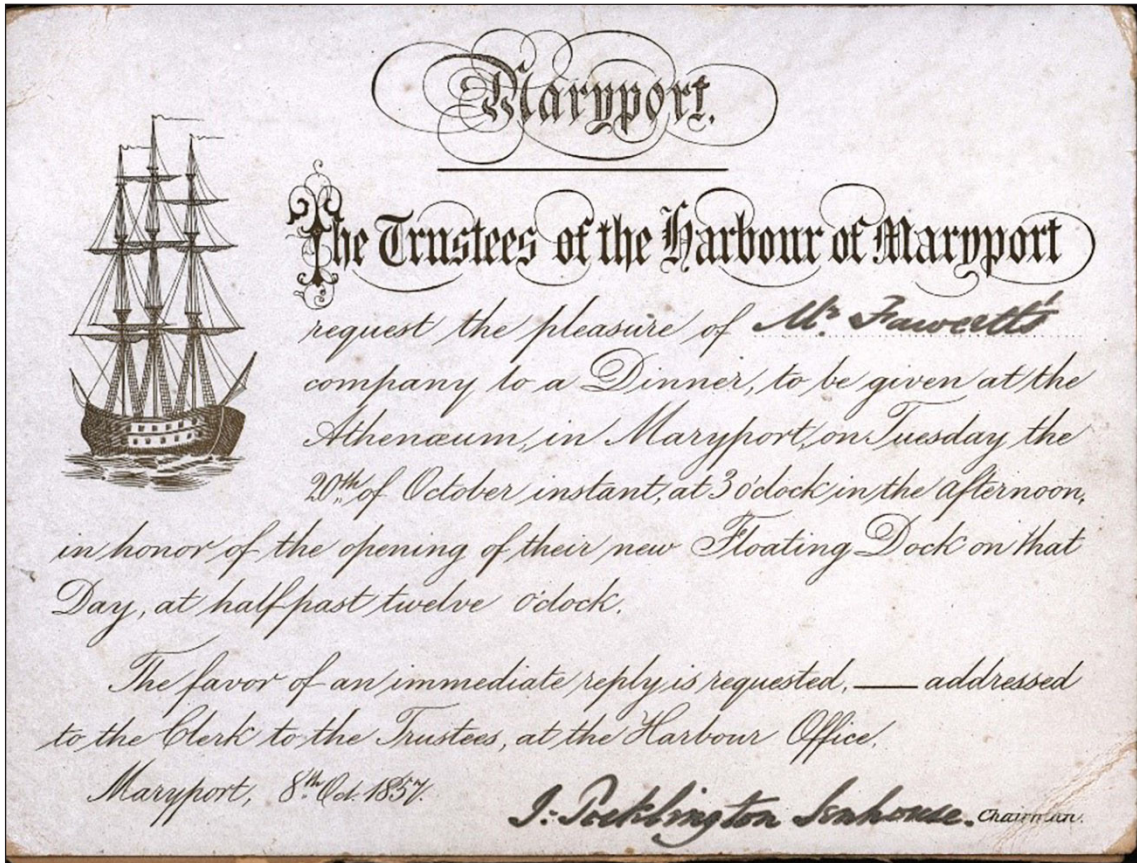 Maryport.
The Trustees of the Harbour of Maryport
request the pleasure of Mr. Fawcett's
company to a Dinner, to be given at the
Athenæum, in Maryport, on Tuesday the
20th of October instant, at 3 o'clock in the afternoon,
in honor of the opening of their new Floating Dock on that
Day, at half past twelve o'clock.
The favor of an immediate reply is requested, — addressed
to the Clerk to the Trustees, at the Harbour Office.
Maryport, 8th Oct. 1857.
J. Pocklington Senhouse. Chairman.